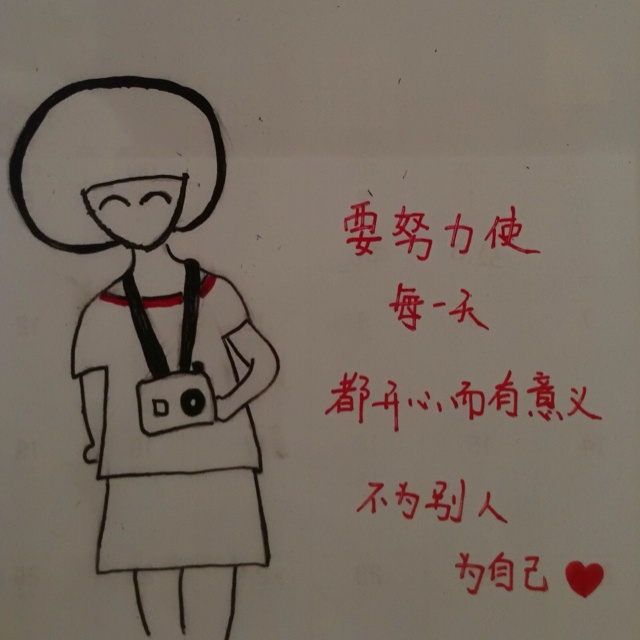 要努力使
每一天
都开心而有意义
不为别人
为自己